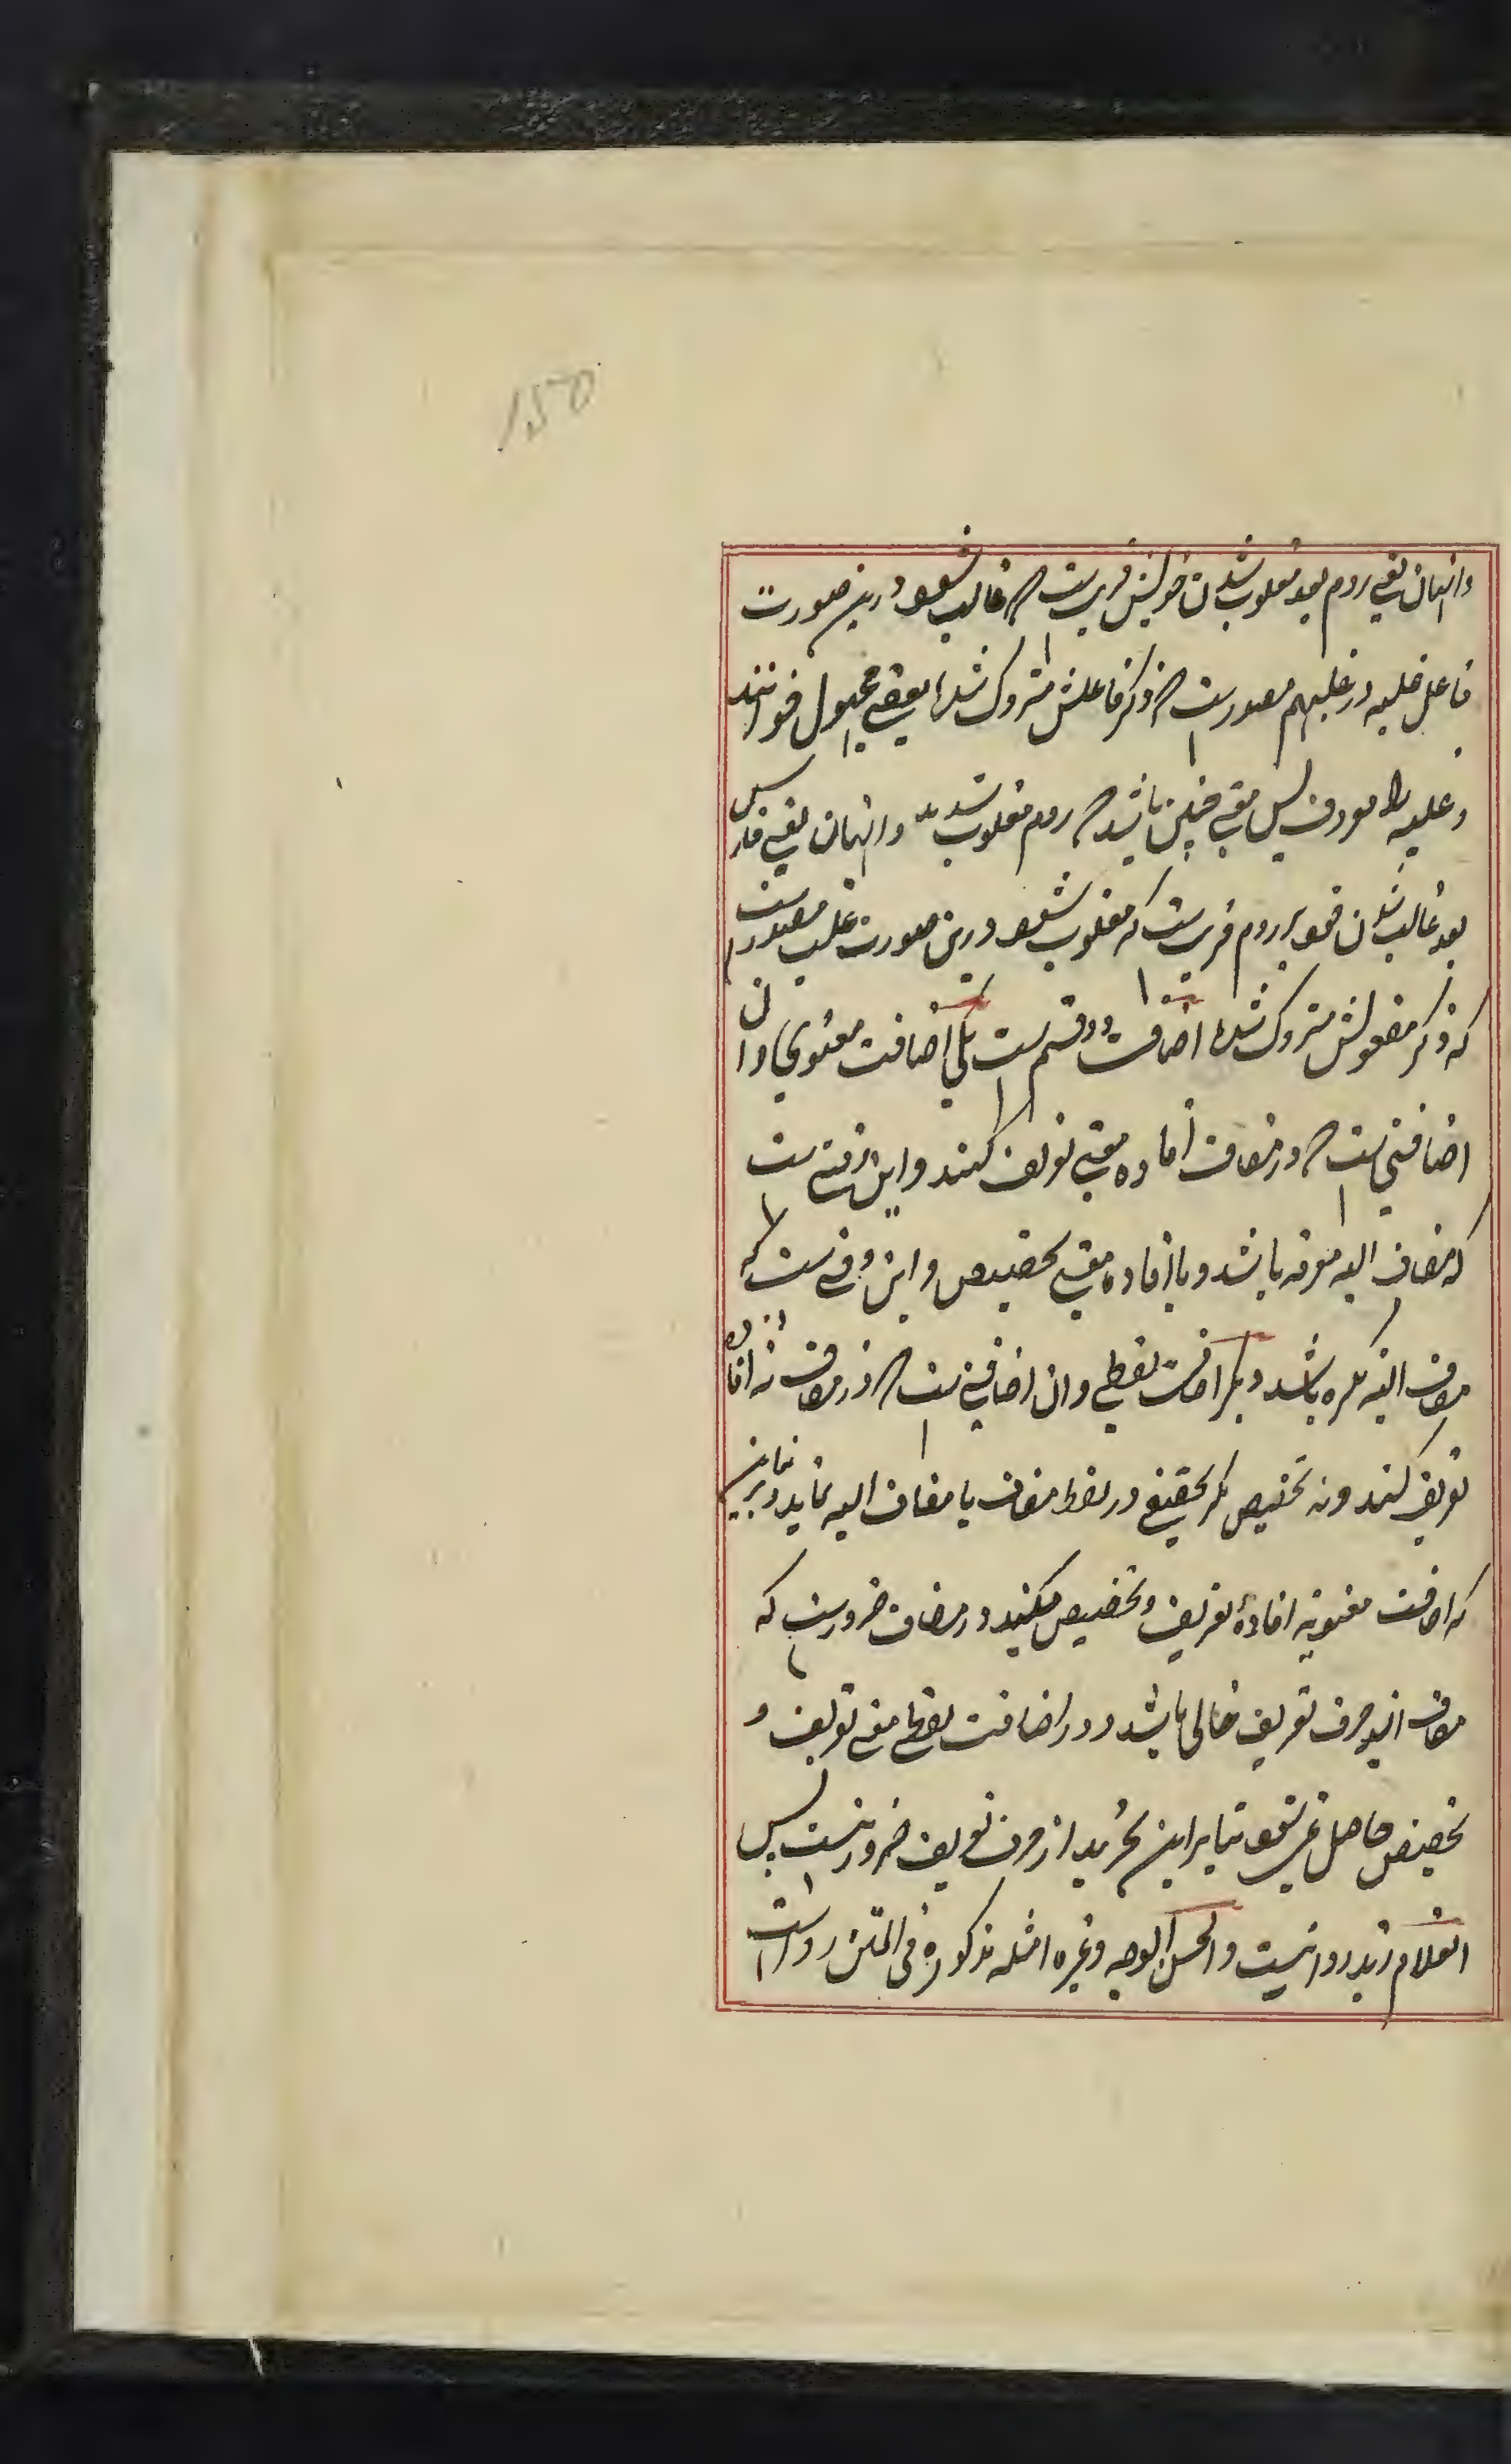 150
و ایشان یعنی روم بعد مغلوب شدن خویش قریب ست که غالب شوند درین صورت
فاعل غلبه در غلبهم مصدرست که ذکر فاعلش متروک شده یعنی مجهول خوانند
و غلبه را معروف پس معنی چنین باشد که روم مغلوب شدند و ایشان یعنی فارس
بعد غالب شدن خود بر روم قریب ست که مغلوب شوند درین صورت غلب مصدرست
که ذکر مفعولش متروک شده اضافت دو قسم ست یکی اضافت معنوی و ان
اضافتی ست که در مضاف افاده معنی تعریف کند و این وقتی ست
که مضاف الیه معرفه باشد و یا افاده معنی تخصیص و این وقتی ست که
مضاف الیه نکره باشد دیگر اضافت لفظی و ان اضافتی ست که در مضاف نه افاده
تعریف کند و نه تخصیص مگر تخفیفی در لفظ مضاف یا مضاف الیه نماید و بنابرین
که اضافت معنویه افادهٔ تعریف و تخصیص میکند در مضاف ضرورست که
مضاف از حرف تعریف خالی باشد و در اضافت لفظی معنی تعریف و
تخصیص حاصل نمی شود بنابراین تجرید از حرف تعریف ضرور نیست پس
الغلام زید روا نیست و الحسن الوجه و غیره امثله مذکوره فی المتن رواست